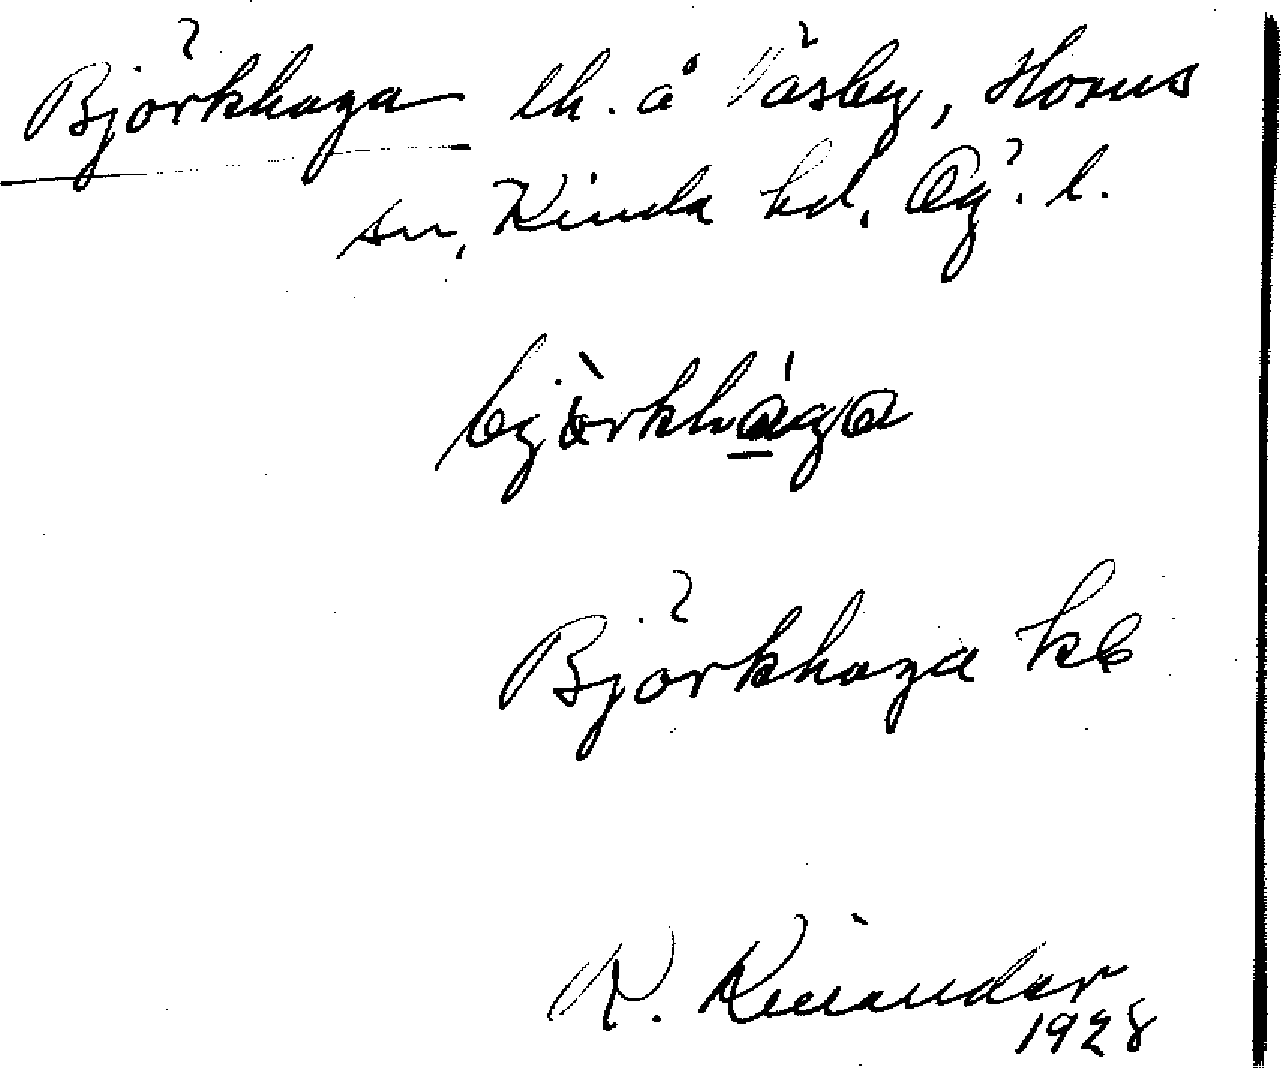 Björkhaga lh. å Väsby, Horns
sn, Kinda hd. Ög. l.
bjò̈rkhága
Björkhaga kb
K. Kinander
1928